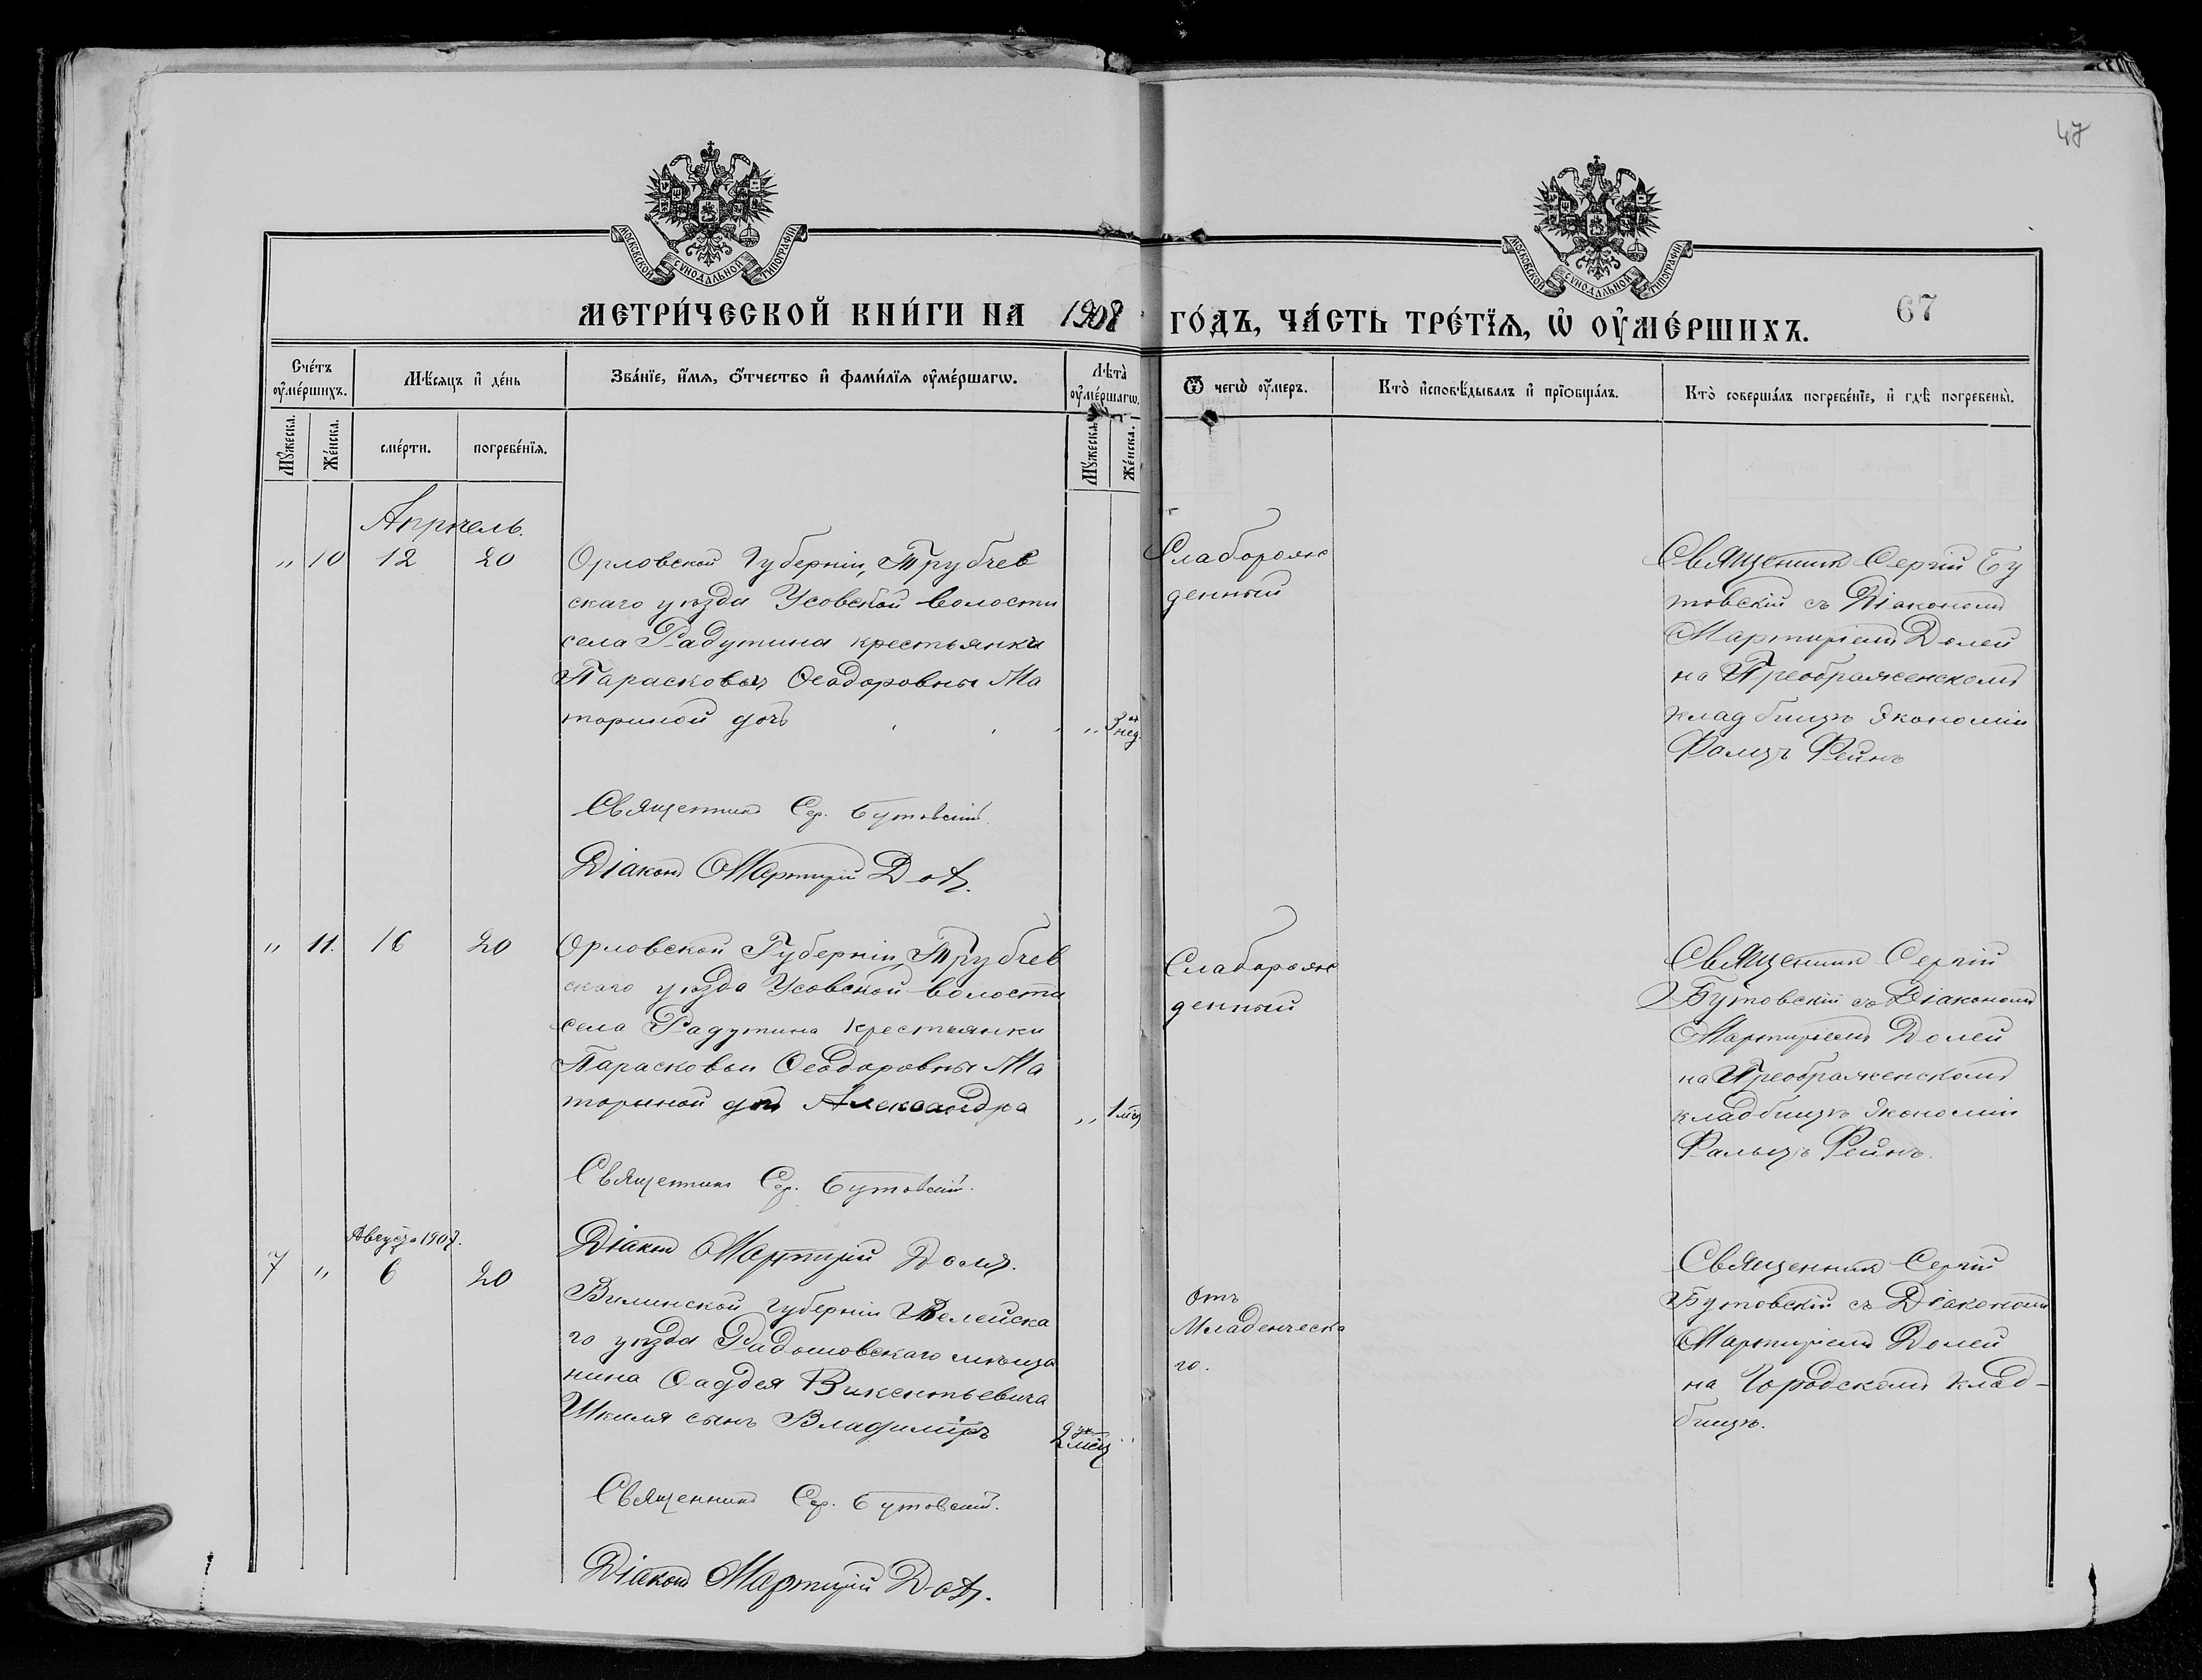 47
МОСКОВСКОЙ СѴНОДАЛЬНОЙ ТИПОГРАФІИ
МОСКОВСКОЙ СѴНОДАЛЬНОЙ ТИПОГРАФІИ
МЕТРИ́ЧЕСКОЙ КНИ́ГИ НА 1908 ГО́ДЪ, ЧА́СТЬ ТРЕ́ТЇѦ, Ѽ ОУ҆МЕ́РШИХЪ.
67
Сче́тъ оу҆ме́ршихъ.
Мѣ́сѧцъ и҆ де́нь
Зва́нїе, и҆́мѧ, ѻ҆́тчество и҆ фами́лїѧ оу҆ме́ршагѡ.
Лѣта̀ оу҆ме́ршагѡ.
Ѿ чегѡ̀ оу҆́меръ.
Кто̀ и҆сповѣ́дывалъ и҆ прїѻбща́лъ.
Кто̀ соверша́лъ погребе́нїе, и҆ гдѣ̀ погребены̀.
Мꙋ́жеска. Же́нска. сме́рти. погребе́нїѧ. Мꙋ́жеска. Же́нска.
Апрѣль.
„ 10 12 20
Орловской Губерніи, Трубчев
скаго уѣзда Усовской волости
села Радутина крестьянки
Парасковьи Ѳеодоровны Ма
ториной дочь
„ 3 нед.
Слаборож
денный
Священникъ Сергій Бу
товскій съ Діакономъ
Мартиріемъ Долей
на Преображенскомъ
кладбищѣ Экономіи
Фальцъ Фейнъ
Священникъ Сер. Бутовскій.
Діаконъ Мартирій Доля.
„ 11. 16 20
Орловской Губерніи, Трубчев
скаго уѣзда Усовской волости
села Радутина крестьянки
Парасковьи Ѳеодоровны Ма
ториной дочь Александра
„ 1 мѣс
Слаборож
денный
Священникъ Сергій
Бутовскій съ Діакономъ
Мартиріемъ Долей
на Преображенскомъ
кладбищѣ Экономіи
Фальцъ Фейнъ.
Священникъ Сер. Бутовскій.
Діаконъ Мартирій Доля.
Августа 1907.
7 „ 6 20
Виленской губерніи Вилейска
го уѣзда Радошовскаго мѣща
нина Ѳаддея Викентьевича
Шкиля сынъ Владиміръ
2 мѣс „
Отъ
Младенческа
го.
Священникъ Сергій
Бутовскій съ Діакономъ
Мартиріемъ Долей
на Городскомъ клад-
бищѣ.
Священникъ Сер. Бутовскій.
Діаконъ Мартирій Доля.